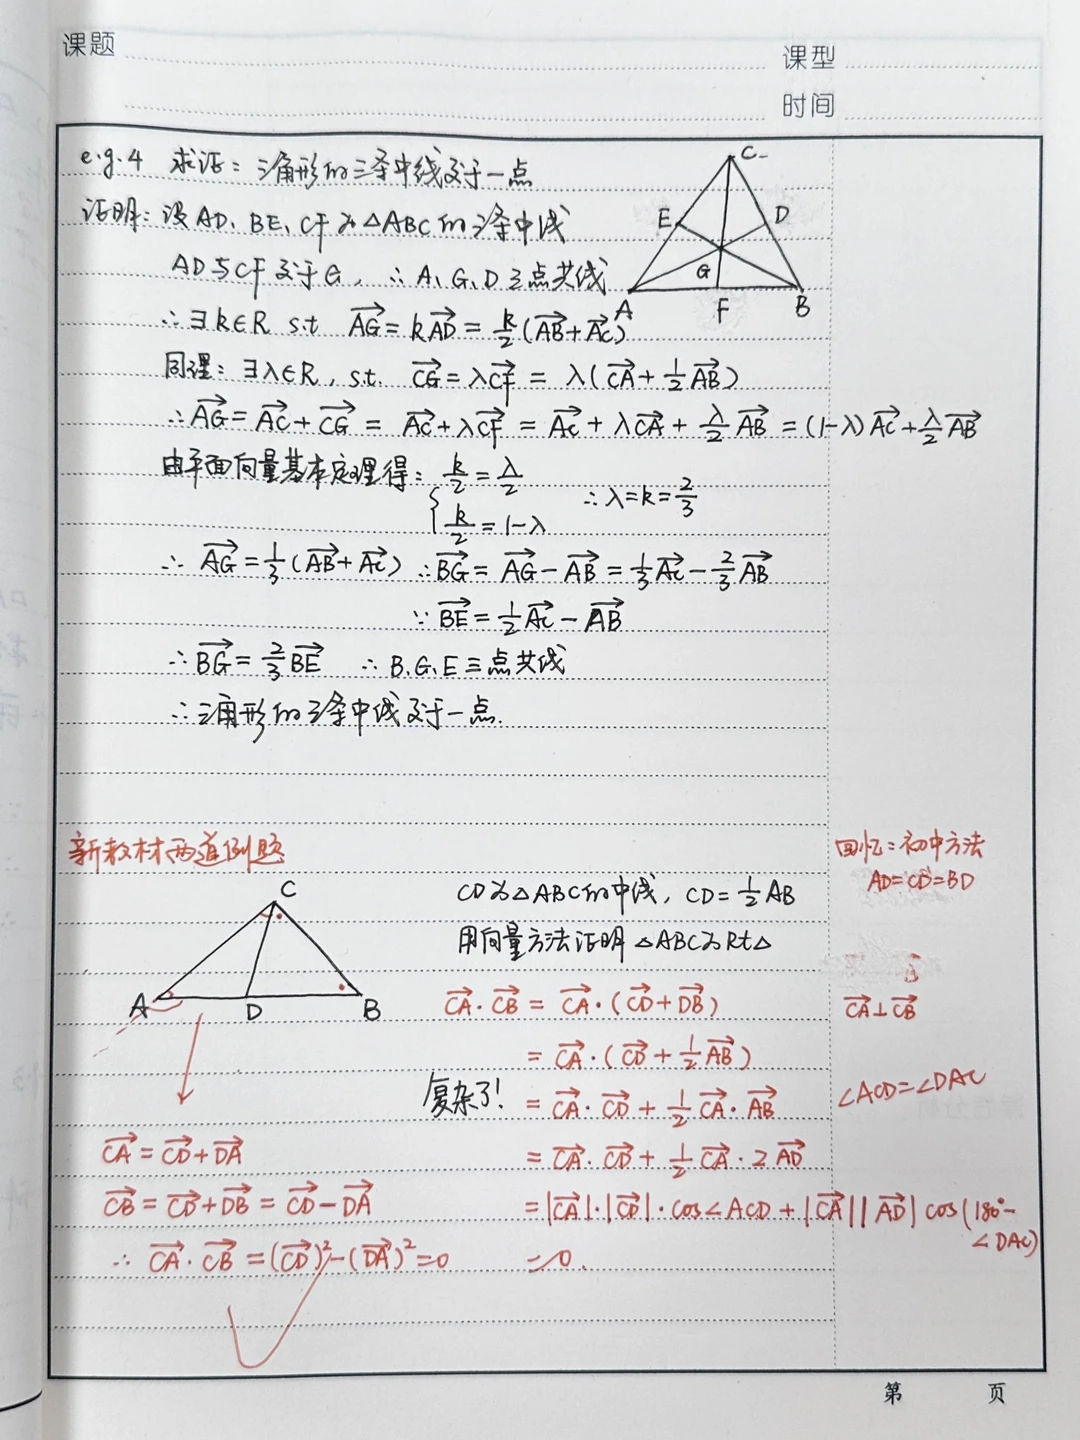 课题
课型
时间
e.g.4 求证：三角形的三条中线交于一点
证明：设AD、BE、CF为△ABC的三条中线
AD与CF交于G，∴A、G、D三点共线
∴∃k∈R s.t $\overrightarrow{AG}=k\overrightarrow{AD}=\frac{k}{2}(\overrightarrow{AB}+\overrightarrow{AC})$
同理：∃λ∈R，s.t. $\overrightarrow{CG}=λ\overrightarrow{CF}=λ(\overrightarrow{CA}+\frac{1}{2}\overrightarrow{AB})$
∴$\overrightarrow{AG}=\overrightarrow{AC}+\overrightarrow{CG}=\overrightarrow{AC}+λ\overrightarrow{CF}=\overrightarrow{AC}+λ\overrightarrow{CA}+\frac{λ}{2}\overrightarrow{AB}=(1-λ)\overrightarrow{AC}+\frac{λ}{2}\overrightarrow{AB}$
由平面向量基本定理得：{ $\frac{k}{2}=\frac{λ}{2}$
$\frac{k}{2}=1-λ$ ∴λ=k=$\frac{2}{3}$
∴ $\overrightarrow{AG}=\frac{1}{3}(\overrightarrow{AB}+\overrightarrow{AC})$ ∴$\overrightarrow{BG}=\overrightarrow{AG}-\overrightarrow{AB}=\frac{1}{3}\overrightarrow{AC}-\frac{2}{3}\overrightarrow{AB}$
∵ $\overrightarrow{BE}=\frac{1}{2}\overrightarrow{AC}-\overrightarrow{AB}$
∴$\overrightarrow{BG}=\frac{2}{3}\overrightarrow{BE}$ ∴B.G.E三点共线
∴三角形的三条中线交于一点.
C
E
D
G
A
F
B
新教材两道例题
C
A
D
B
CD为△ABC的中线，CD=$\frac{1}{2}$AB
用向量方法证明△ABC为Rt△
$\overrightarrow{CA}·\overrightarrow{CB}=\overrightarrow{CA}·(\overrightarrow{CD}+\overrightarrow{DB})$
$=\overrightarrow{CA}·(\overrightarrow{CD}+\frac{1}{2}\overrightarrow{AB})$
复杂了！ $=\overrightarrow{CA}·\overrightarrow{CD}+\frac{1}{2}\overrightarrow{CA}·\overrightarrow{AB}$
$=\overrightarrow{CA}·\overrightarrow{CD}+\frac{1}{2}\overrightarrow{CA}·2\overrightarrow{AD}$
$=|\overrightarrow{CA}|·|\overrightarrow{CD}|·cos∠ACD+|\overrightarrow{CA}||\overrightarrow{AD}|cos(180°-$
∠DAC)
=0.
$\overrightarrow{CA}=\overrightarrow{CD}+\overrightarrow{DA}$
$\overrightarrow{CB}=\overrightarrow{CD}+\overrightarrow{DB}=\overrightarrow{CD}-\overrightarrow{DA}$
∴ $\overrightarrow{CA}·\overrightarrow{CB}=(\overrightarrow{CD})^2-(\overrightarrow{DA})^2=0$
回忆：初中方法
AD=CD=BD
$\overrightarrow{CA}⊥\overrightarrow{CB}$
∠ACD=∠DAC
第 页